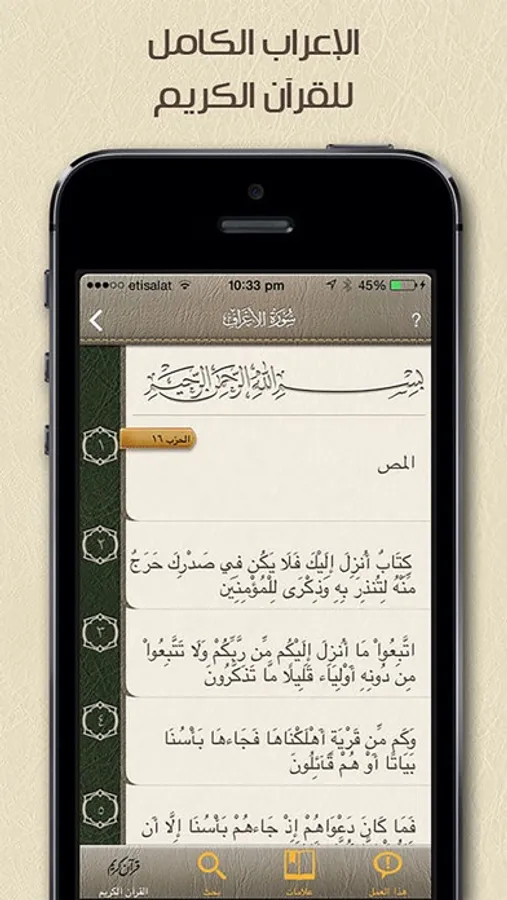 الإعراب الكامل
للقرآن الكريم
etisalat
10:33 pm
45%
سورة الأعراف
?
بسم الله الرحمن الرحيم
١
الحزب ١٦
المص
٢
كِتَابٌ أُنزِلَ إِلَيْكَ فَلَا يَكُن فِي صَدْرِكَ حَرَجٌ
مِّنْهُ لِتُنذِرَ بِهِ وَذِكْرَى لِلْمُؤْمِنِينَ
٣
اتَّبِعُواْ مَا أُنزِلَ إِلَيْكُم مِّن رَّبِّكُمْ وَلَا تَتَّبِعُواْ
مِن دُونِهِ أَوْلِيَاء قَلِيلًا مَّا تَذَكَّرُونَ
٤
وَكَم مِّن قَرْيَةٍ أَهْلَكْنَاهَا فَجَاءهَا بَأْسُنَا
بَيَاتًا أَوْ هُمْ قَآئِلُونَ
٥
فَمَا كَانَ دَعْوَاهُمْ إِذْ جَاءهُمْ بَأْسُنَا إِلَّا أَن
قرآن كريم
القرآن الكريم
بحث
علامات
هذا العمل